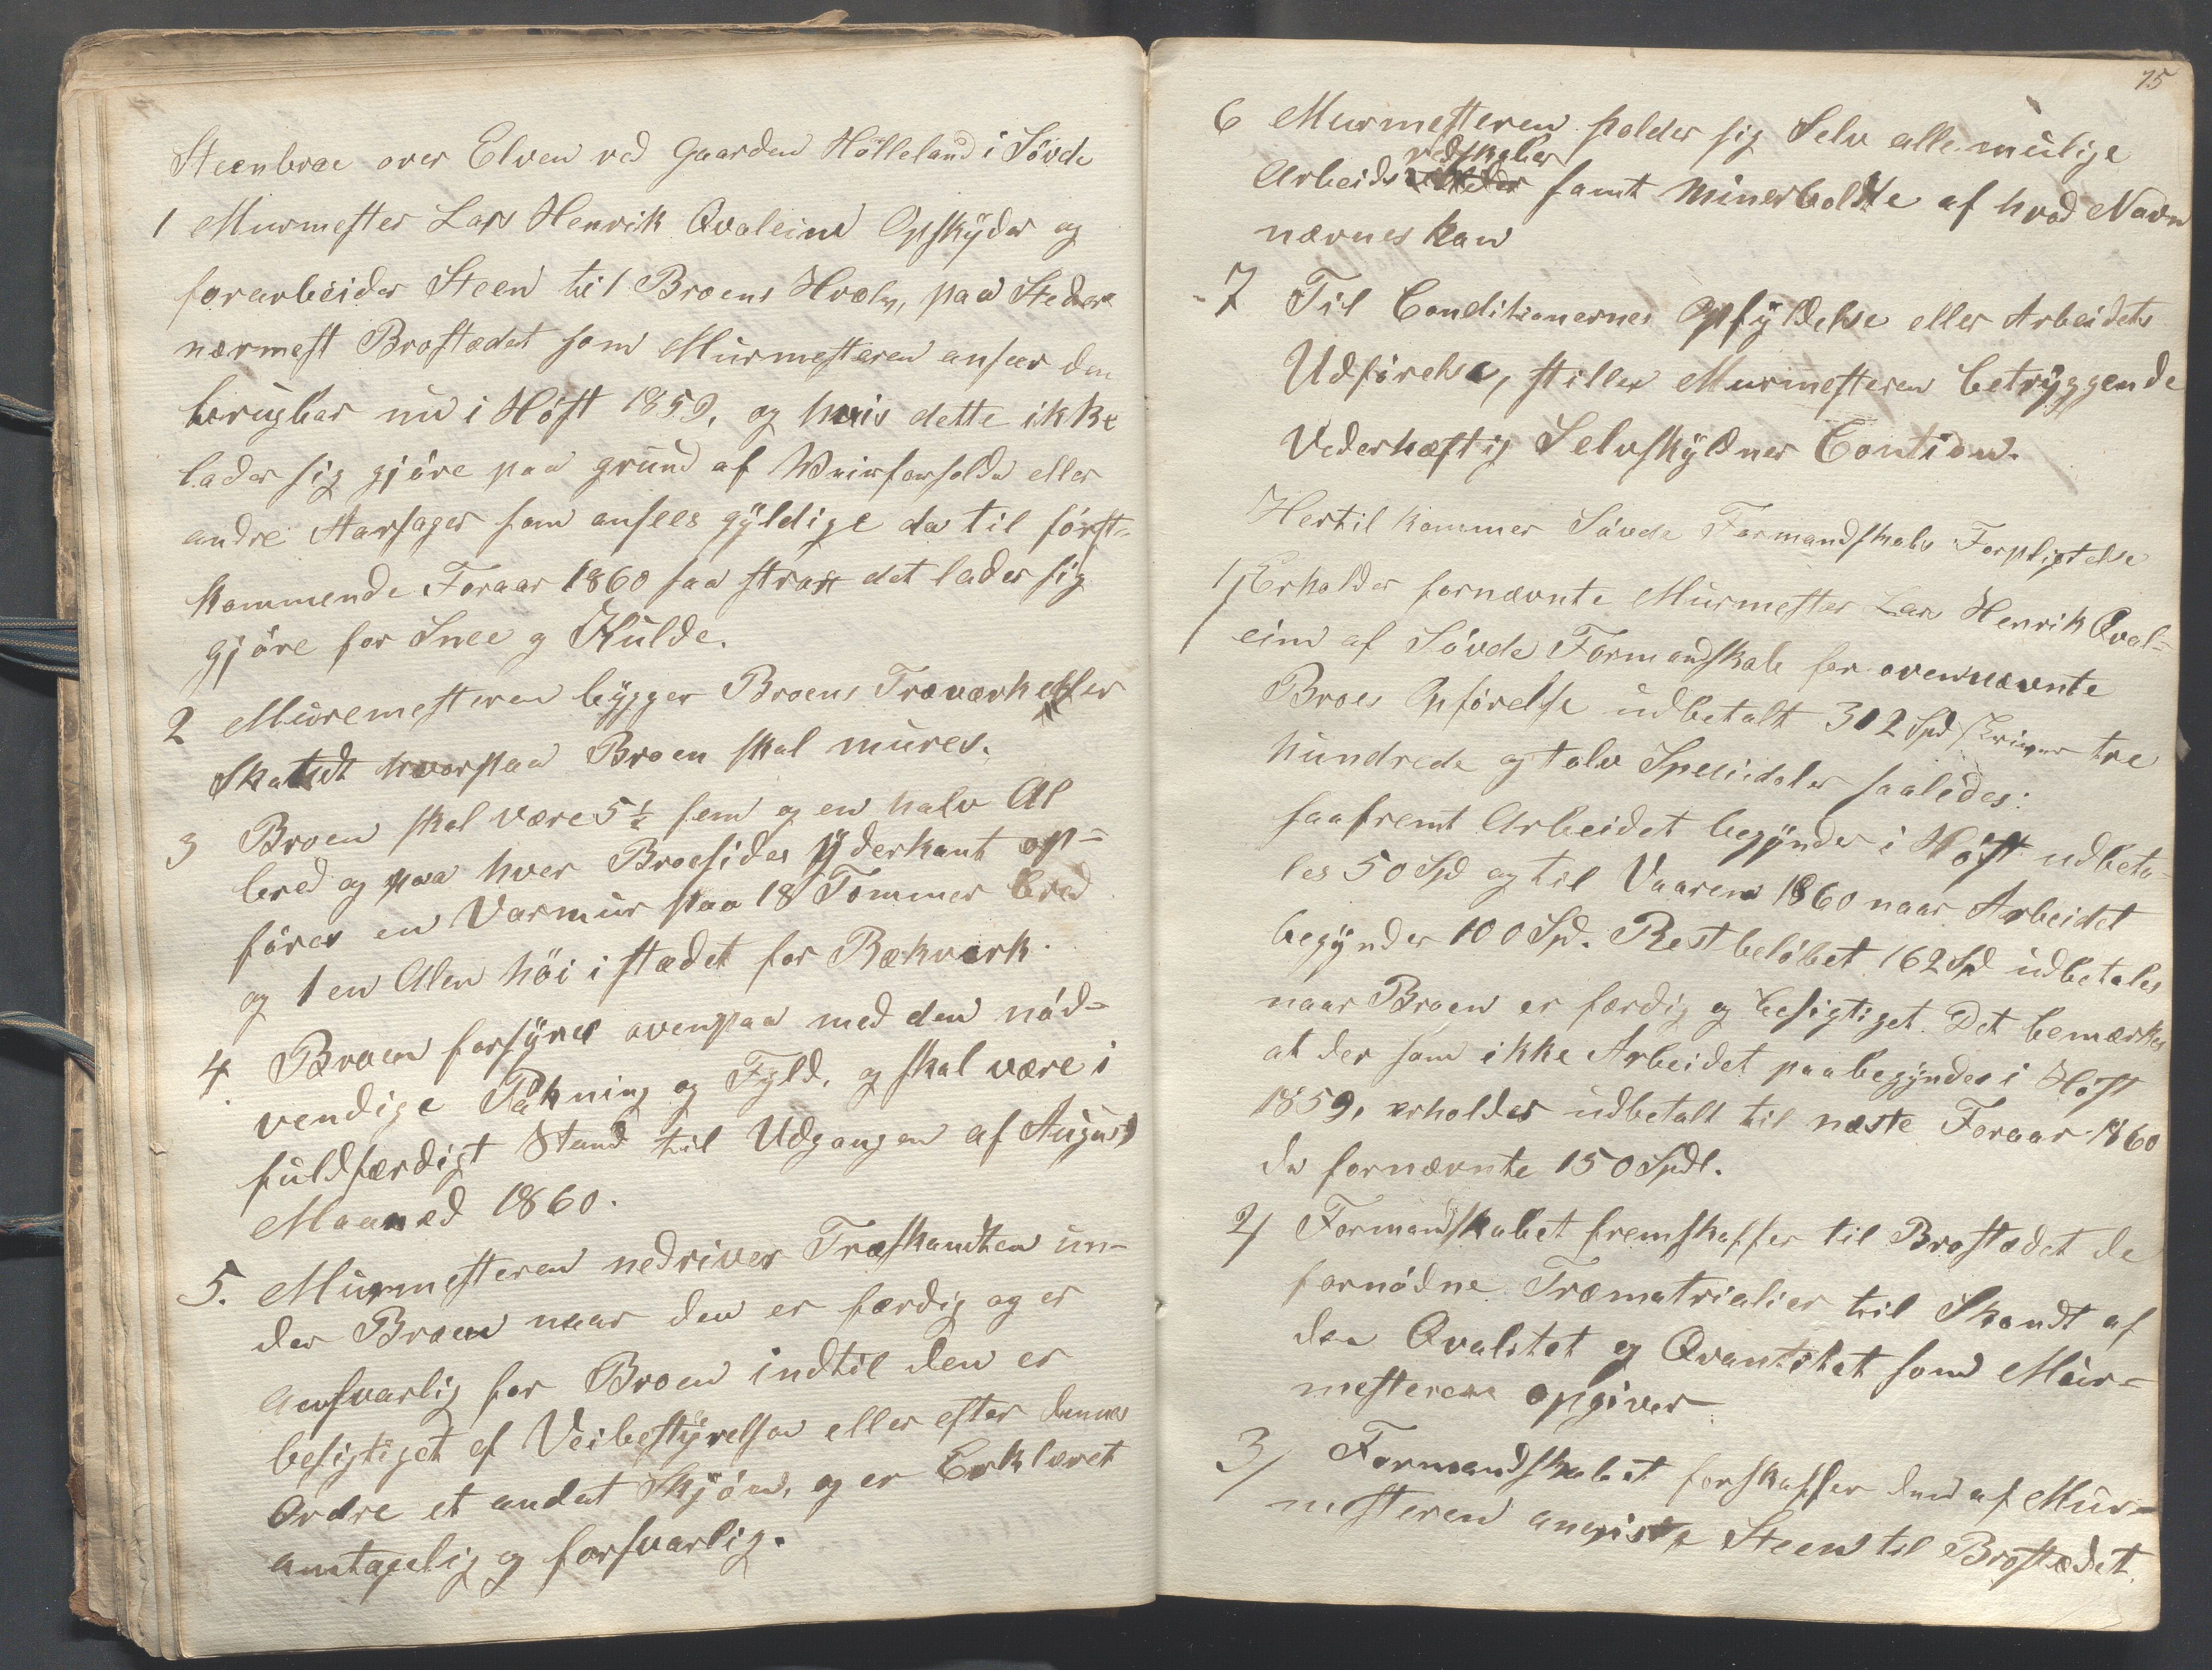 Steenbroe over Elven ved Gaarden Hölleland i Sövde
1 Murmester Lars Henrik Qvaleim Opskyder og
forarbeider Steen til Broens Hvælv, paa Steder
nærmest Brostædet som Murmesteren anseer den
brugbar nu i Höst 1859, og hvis dette ikke
lader sig gjöre paa grund af Veirforholde eller
andre Aarsager som ansees gyldige da til först-
kommende Foraar 1860 saa strax det lader sig
gjöre for Snee og Kulde.
2 Muremesteren bygger Broens Træværk eller
Skandt hvorpaa Broen skal mures.
3 Broen skal være 5½ fem og en halv Al
bred og paa hver Broesides yderkant op-
föres en Varmur paa 18 Tommer bred
og 1 en Alen höi i stædet for Rækværk.
4 Broen forsynes ovenpaa med den nöd-
vendige Pakning og Fyld, og skal være i
fuldfærdigt Stand til Udgangen af August
Maaned 1860.
5. Murmesteren nedriver Træskandten un-
der Broen naar den er færdig og er
ansvarlig for Broen indtil den er
besigtiget af Veibestyrelsen eller efter dennes
Ordre et andet Skjön, og er Erklæret
antagelig og forsvarlig.
75
6 Murmesteren holder sig Selv alle mulige
redskaber
Arbeids samt Minerboldte af hvad Navn
nævnes kan
7 Til Conditionernes Opfyldelse eller Arbeidets
Udförelse, stiller Murmesteren betryggende
Vederhæftig Selvskyldner Contion.
Hertil kommer Sövde Formandskabs Forpligtelse
1/ Erholder fornævnte Murmester Lars Henrik Qval-
eim af Sövde Formandskab for ovennævnte
Broes Opförelse udbetalt 312 Spd skriver tre
hundrede og tolv Speciedaler saaledes:
saafremt Arbeidet begynder i Höst udbeta-
les 50 Spd og til Vaaren 1860 naar Arbeidet
begynder 100 Spd. Restbelöbet 162 Spd udbetales
naar Broen er færdig og besigtiget. Det bemærkes
at der som ikke Arbeidet paabegyndes i Höst
1859, erholdes udbetalt til næste Foraar 1860
de fornævnte 150 Spdl.
2/ Formandskabet fremskaffer til Brostædet de
fornödne Træmatrialier til Skandt af
den Qvalitet og Qvantitet som Mur-
mesteren opgiver
3/ Formandskabet forskaffer den af Mur-
mesteren anviste Steen til Brostædet.